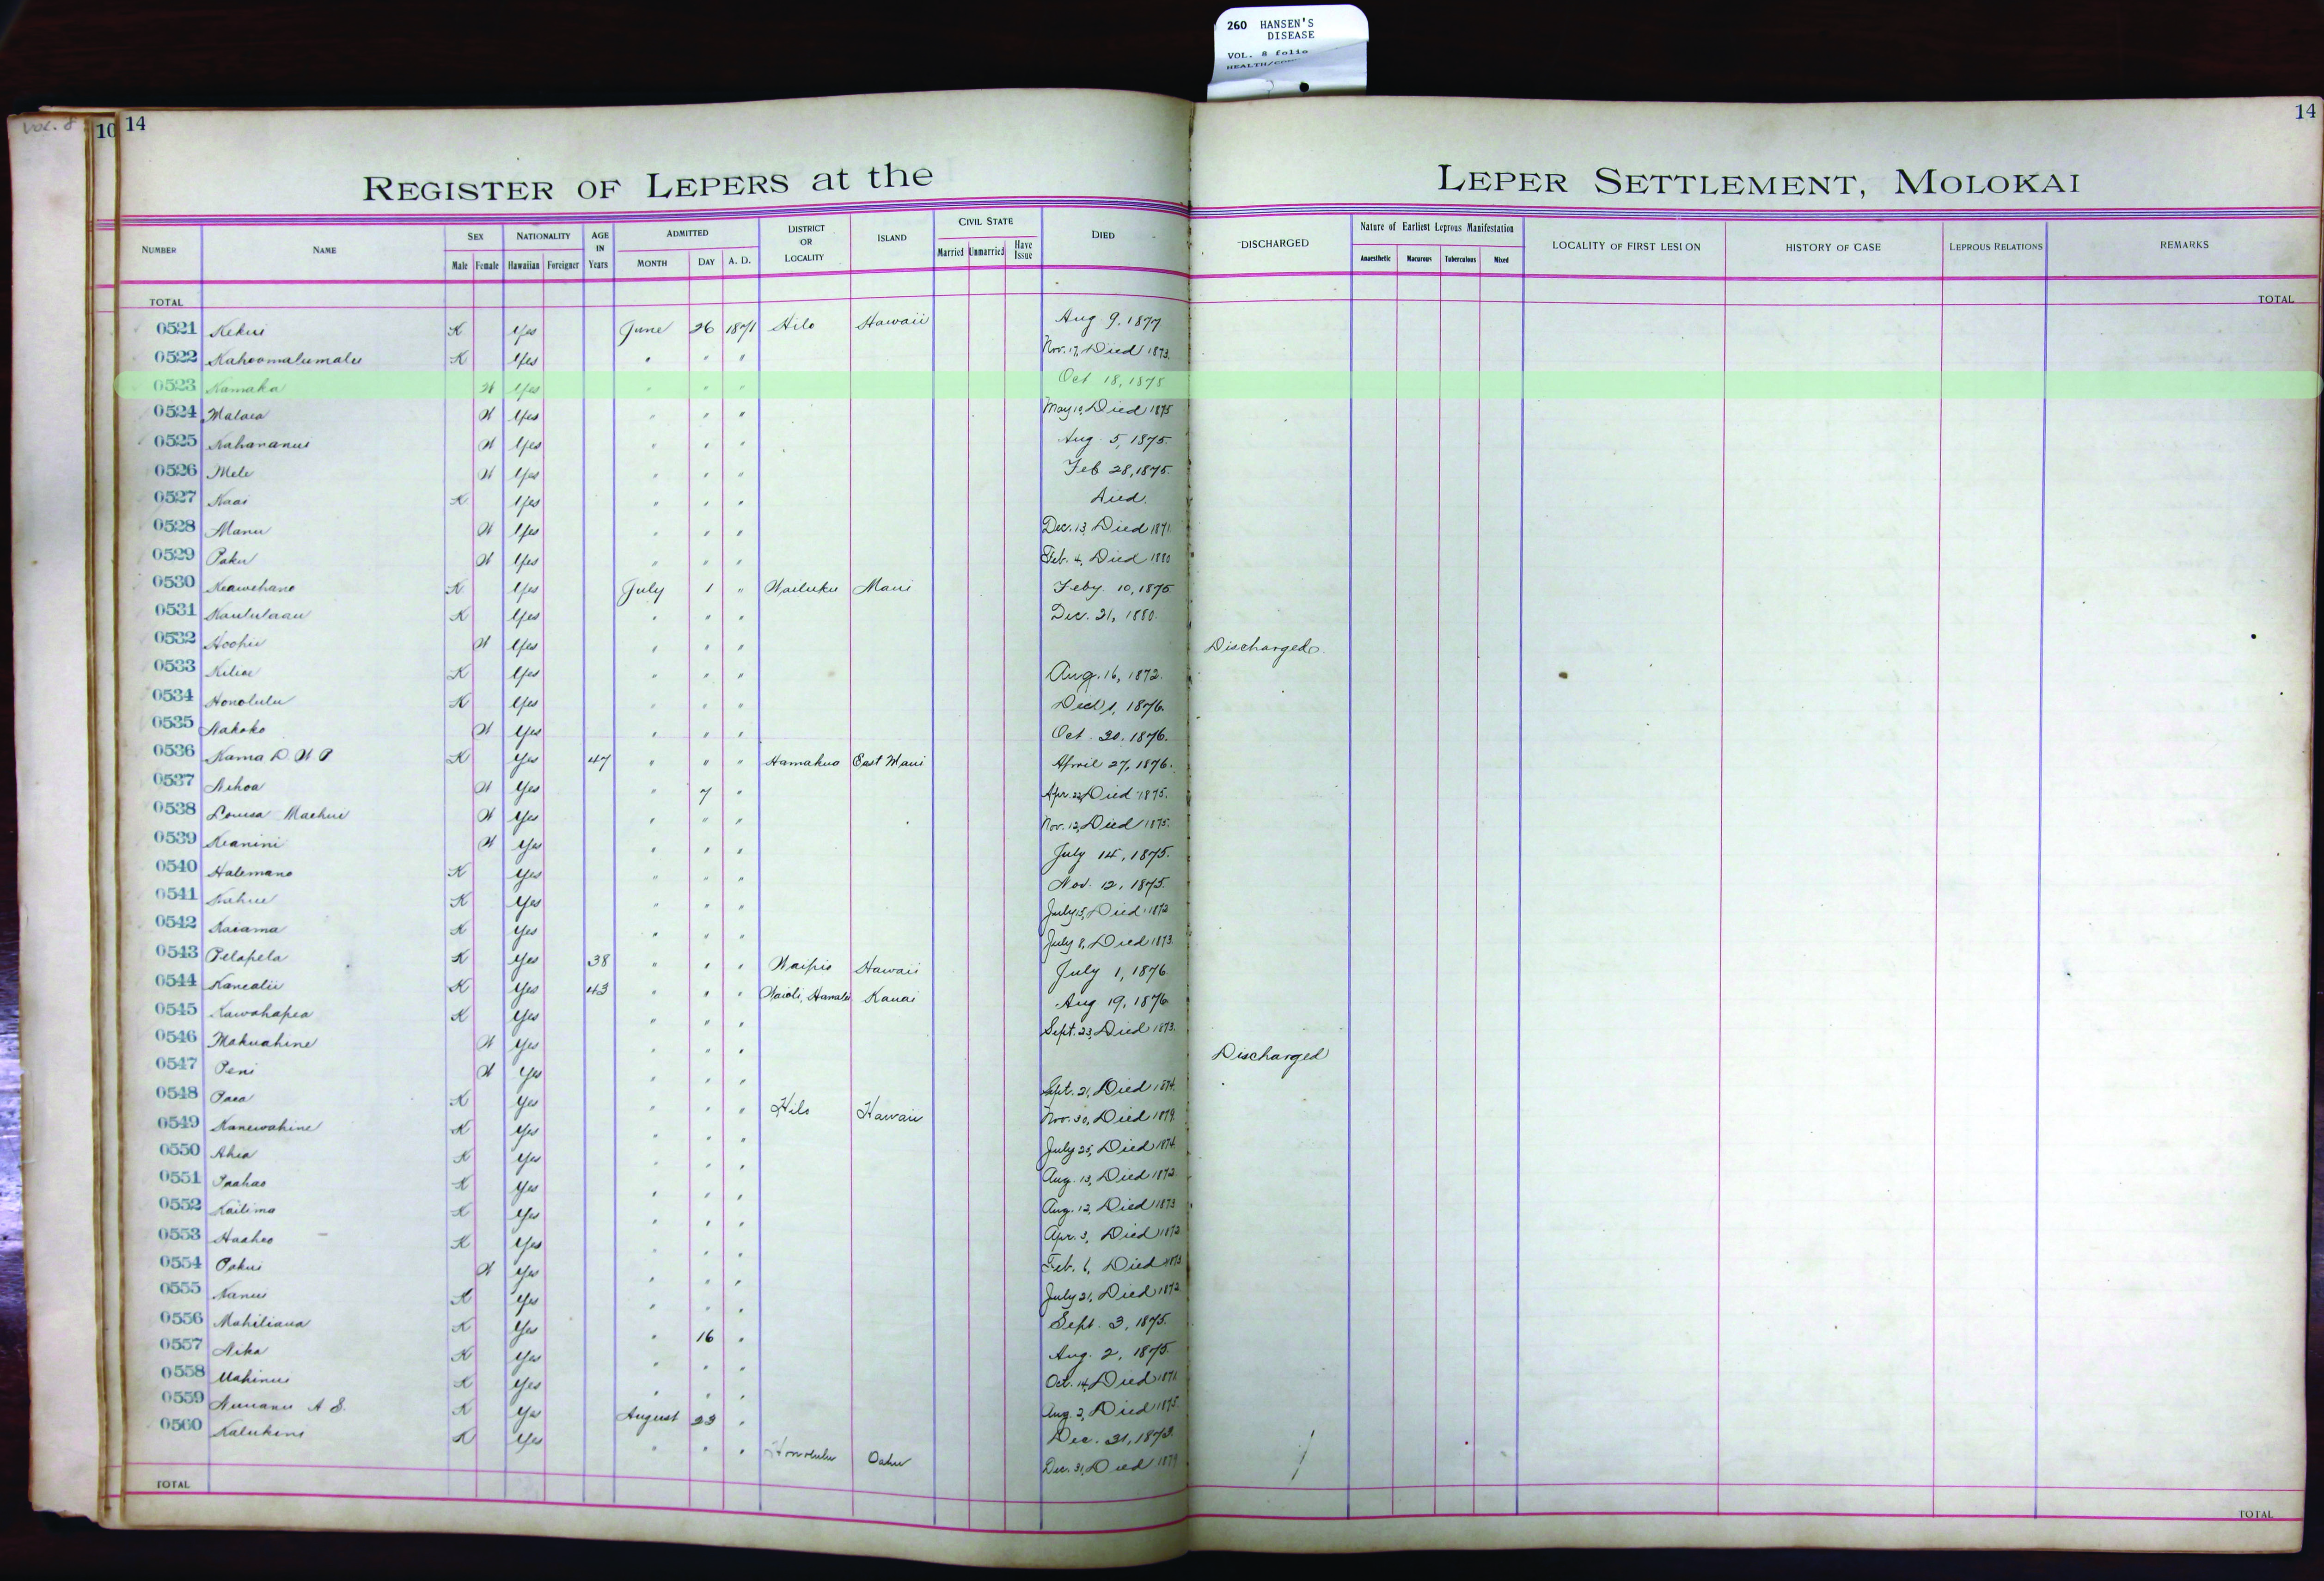 260 HANSEN'S
DISEASE
VOL. 8 folio
VOL. 8
10 14
14
REGISTER OF LEPERS at the LEPER SETTLEMENT, MOLOKAI
NUMBER NAME SEX Male Female NATIONALITY Hawaiian Foreigner AGE IN Years ADMITTED MONTH DAY A. D. DISTRICT OR LOCALITY ISLAND CIVIL STATE Married Unmarried Have Issue DIED DISCHARGED Nature of Earliest Leprous Manifestation Anaesthetic Macurous Tuberculous Mixed LOCALITY OF FIRST LESION HISTORY OF CASE LEPROUS RELATIONS REMARKS
TOTAL TOTAL
0521 Kekui K Yes June 26 1871 Hilo Hawaii Aug 9, 1877
0522 Kahoomalumalu K Yes " " " Nov. 17, Died 1873.
0523 Kamaka W Yes " " " Oct 18, 1878
0524 Malaea W Yes " " " May 10, Died 1875
0525 Kahananui W Yes " " " Aug. 5, 1875.
0526 Mele W Yes " " " Feb 28, 1875.
0527 Kaai K Yes " " " Died.
0528 Manu W Yes " " " Dec. 13, Died 1871
0529 Paku W Yes " " " Feb. 4, Died 1880
0530 Keawehano K Yes July 1 " Wailuku Maui Feby 10, 1875
0531 Kaululaau K Yes " " " Dec. 21, 1880.
0532 Hoohii W Yes " " " Discharged.
0533 Kiliae K Yes " " " Aug. 16, 1872.
0534 Honolulu K Yes " " " 1, 1876.
0535 Nakoko W Yes " " " Oct. 20, 1876.
0536 Kama D. W P K Yes 47 " " " Hamakua East Maui April 27, 1876.
0537 Nihoa W Yes " 7 " Apr. 22, Died 1875.
0538 Louisa Maehui W Yes " " " Nov. 12, Died 1875.
0539 Keanini W Yes " " " July 14, 1875.
0540 Halemano K Yes " " " Nov. 12, 1875.
0541 Kahue K Yes " " " July 15, Died 1872
0542 Kaiama K Yes " " " July 8, Died 1873.
0543 Pelapela K Yes 38 " " " Waipio Hawaii July 1, 1876
0544 Kanealii K Yes 43 " " " Waioli, Hanalei Kauai Aug 19, 1876
0545 Kawahapea K Yes " " " Sept. 23, Died 1873.
0546 Makuahine W Yes " " " Discharged
0547 Peni W Yes " " " Sept. 21, Died 1874.
0548 Paea K Yes " " " Hilo Hawaii Nov. 30, Died 1879.
0549 Kanewahine K Yes " " " July 25, Died 1874.
0550 Ahia K Yes " " " Aug. 13, Died 1872.
0551 Paahao K Yes " " " Aug. 12, Died 1873
0552 Kailima K Yes " " " Apr. 3, Died 1872
0553 Haaheo K Yes " " " Feb. 6, Died 1873
0554 Pakui W Yes " " " July 21, Died 1872
0555 Nanui K Yes " " " Sept. 3, 1875.
0556 Mahiliana K Yes " 16 " Aug. 2, 1875.
0557 Nika K Yes " " " Oct. 14, Died 1871.
0558 Mahinui K Yes " " " Aug. 2, Died 1875.
0559 Nunanu A S. K Yes August 23 " Dec. 31, 1873.
0560 Kalukini K Yes " " " Honolulu Oahu Dec. 31, Died 1879
TOTAL TOTAL